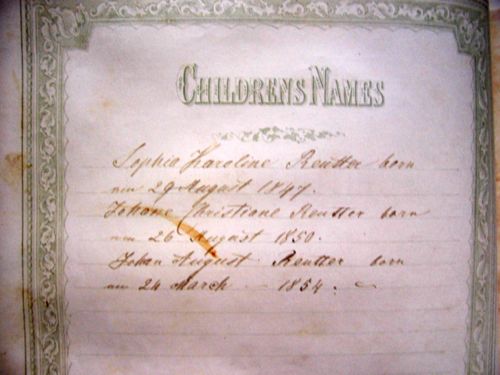 CHILDRENS NAMES
Sophia Karoline Reutter born
am 29 August 1847.
Johane Christiane Reutter born
am 26 August 1850.
Johan August Reutter born
am 24 March - 1854.